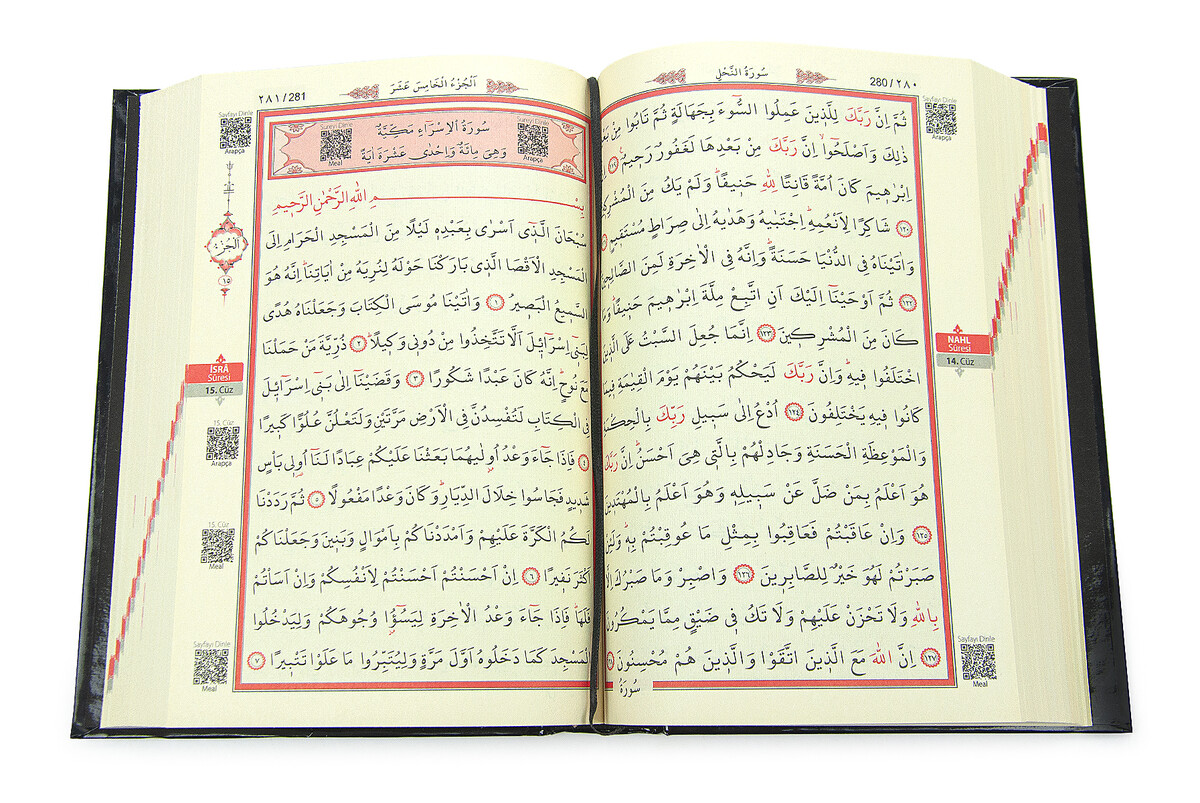 سُورَةُ النَّحْلِ
280/٢٨٠
Sayfayı Dinle
Arapça
ثُمَّ اِنَّ رَبَّكَ لِلَّذ۪ينَ عَمِلُوا السُّٓوءَ بِجَهَالَةٍ ثُمَّ تَابُوا مِنْ
ذٰلِكَ وَاَصْلَحُٓوا اِنَّ رَبَّكَ مِنْ بَعْدِهَا لَغَفُورٌ رَح۪يمٌ ﴿١١٩﴾
اِبْرٰه۪يمَ كَانَ اُمَّةً قَانِتًا لِلّٰهِ حَن۪يفًاۜ وَلَمْ يَكُ مِنَ
﴿١٢٠﴾ شَاكِرًا لِاَنْعُمِهِۜ اِجْتَبٰيهُ وَهَدٰيهُ اِلٰى صِرَاطٍ مُسْتَق۪يمٍ
وَاٰتَيْنَاهُ فِي الدُّنْيَا حَسَنَةًۜ وَاِنَّهُ فِي الْاٰخِرَةِ لَمِنَ
﴿١٢٢﴾ ثُمَّ اَوْحَيْنَٓا اِلَيْكَ اَنِ اتَّبِعْ مِلَّةَ اِبْرٰه۪يمَ حَن۪يفًاۜ
كَانَ مِنَ الْمُشْرِك۪ينَ ﴿١٢٣﴾ اِنَّمَا جُعِلَ السَّبْتُ عَلَى
اخْتَلَفُوا ف۪يهِۜ وَاِنَّ رَبَّكَ لَيَحْكُمُ بَيْنَهُمْ يَوْمَ الْقِيٰمَةِ
كَانُوا ف۪يهِ يَخْتَلِفُونَ ﴿١٢٤﴾ اُدْعُ اِلٰى سَب۪يلِ رَبِّكَ
وَالْمَوْعِظَةِ الْحَسَنَةِ وَجَادِلْهُمْ بِالَّت۪ي هِيَ اَحْسَنُۜ اِنَّ
هُوَ اَعْلَمُ بِمَنْ ضَلَّ عَنْ سَب۪يلِه۪ وَهُوَ اَعْلَمُ بِالْمُهْتَد۪ينَ
﴿١٢٥﴾ وَاِنْ عَاقَبْتُمْ فَعَاقِبُوا بِمِثْلِ مَا عُوقِبْتُمْ بِه۪ۜ
صَبَرْتُمْ لَهُوَ خَيْرٌ لِلصَّابِر۪ينَ ﴿١٢٦﴾ وَاصْبِرْ وَمَا صَبْرُكَ
بِاللّٰهِ وَلَا تَحْزَنْ عَلَيْهِمْ وَلَا تَكُ ف۪ي ضَيْقٍ مِمَّا يَمْكُرُونَ
﴿١٢٧﴾ اِنَّ اللّٰهَ مَعَ الَّذ۪ينَ اتَّقَوْا وَالَّذ۪ينَ هُمْ مُحْسِنُونَ
سُورَةُ
NAHL
Sûresi
14. Cüz
Sayfayı Dinle
Meal
اَلْجُزْءُ الْخَامِسَ عَشَرَ
٢٨١/281
Sayfayı Dinle
Arapça
سُورَةُ الْاِسْرَٓاءِ مَكِّيَّةٌ
وَهِيَ مِائَةٌ وَاِحْدٰى عَشْرَةَ اٰيَةً
Sureyi Dinle
Meal
Sureyi Dinle
Arapça
بِسْمِ اللّٰهِ الرَّحْمٰنِ الرَّح۪يمِ
سُبْحَانَ الَّذ۪ٓي اَسْرٰى بِعَبْدِه۪ لَيْلًا مِنَ الْمَسْجِدِ الْحَرَامِ اِلَى
الْمَسْجِدِ الْاَقْصَا الَّذ۪ي بَارَكْنَا حَوْلَهُ لِنُرِيَهُ مِنْ اٰيَاتِنَاۜ اِنَّهُ هُوَ
السَّم۪يعُ الْبَص۪يرُ ﴿١﴾ وَاٰتَيْنَا مُوسَى الْكِتَابَ وَجَعَلْنَاهُ هُدًى
لِبَن۪ٓي اِسْرَٓائ۪لَ اَلَّا تَتَّخِذُوا مِنْ دُون۪ي وَك۪يلًاۜ ﴿٢﴾ ذُرِّيَّةَ مَنْ حَمَلْنَا
مَعَ نُوحٍۜ اِنَّهُ كَانَ عَبْدًا شَكُورًا ﴿٣﴾ وَقَضَيْنَٓا اِلٰى بَن۪ٓي اِسْرَٓائ۪لَ
فِي الْكِتَابِ لَتُفْسِدُنَّ فِي الْاَرْضِ مَرَّتَيْنِ وَلَتَعْلُنَّ عُلُوًّا كَب۪يرًا
﴿٤﴾ فَاِذَا جَٓاءَ وَعْدُ اُو۫لٰيهُمَا بَعَثْنَا عَلَيْكُمْ عِبَادًا لَنَٓا اُو۬ل۪ي بَأْسٍ
شَد۪يدٍ فَجَاسُوا خِلَالَ الدِّيَارِۜ وَكَانَ وَعْدًا مَفْعُولًا ﴿٥﴾ ثُمَّ رَدَدْنَا
لَكُمُ الْكَرَّةَ عَلَيْهِمْ وَاَمْدَدْنَاكُمْ بِاَمْوَالٍ وَبَن۪ينَ وَجَعَلْنَاكُمْ
اَكْثَرَ نَف۪يرًا ﴿٦﴾ اِنْ اَحْسَنْتُمْ اَحْسَنْتُمْ لِاَنْفُسِكُمْ وَاِنْ اَسَأْتُمْ
فَلَهَاۜ فَاِذَا جَٓاءَ وَعْدُ الْاٰخِرَةِ لِيَسُٓؤُ۫ا وُجُوهَكُمْ وَلِيَدْخُلُوا
الْمَسْجِدَ كَمَا دَخَلُوهُ اَوَّلَ مَرَّةٍ وَلِيُتَبِّرُوا مَا عَلَوْا تَتْب۪يرًا ﴿٧﴾
اَلْجُزْءُ
١٥
İSRÂ
Sûresi
15. Cüz
15. Cüz
Arapça
15. Cüz
Meal
Sayfayı Dinle
Meal